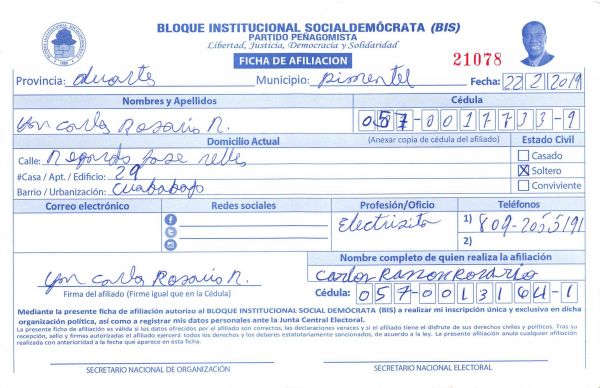 BLOQUE INSTITUCIONAL SOCIALDEMÓCRATA (BIS)
PARTIDO PEÑAGOMISTA
Libertad, Justicia, Democracia y Solidaridad
FICHA DE AFILIACION
21078
Provincia: duarte Municipio: pimentel Fecha: 22 2 2019
Nombres y Apellidos Cédula
Yon Carlos Rosario R. 057-0017733-9
Domicilio Actual (Anexar copia de cédula del afiliado) Estado Civil
Calle: jose relles
Casado
#Casa / Apt. / Edificio: 29
X Soltero
Barrio / Urbanización:
Conviviente
Correo electrónico Redes sociales Profesión/Oficio Teléfonos
Electrisita 1) 809-2055191
2)
Nombre completo de quien realiza la afiliación
Yon Carlos Rosario R. Carlos Ramon Rosario
Firma del afiliado (Firme igual que en la Cédula) Cédula: 057-0013164-1
Mediante la presente ficha de afiliación autorizo al BLOQUE INSTITUCIONAL SOCIAL DEMÓCRATA (BIS) a realizar mi inscripción única y exclusiva en dicha
organización política, así como a registrar mis datos personales ante la Junta Central Electoral.
La presente ficha de afiliación es válida si los datos ofrecidos por el afiliado son correctos, las declaraciones veraces y si el afiliado tiene el disfrute de sus derechos civiles y políticos. Tras su
recepción, sello y firmas autorizadas el afiliado ejercerá todos los derechos y los deberes estatutariamente sancionados, de acuerdo a la ley. La presente afiliación anula cualquier afiliación
realizada con anterioridad a la fecha que aparece en esta ficha.
SECRETARIO NACIONAL DE ORGANIZACIÓN SECRETARIO NACIONAL ELECTORAL